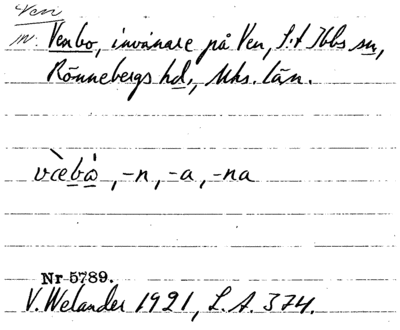 Ven
m. Venbo, invånare på Ven, S:t Ibbs sn,
Rönnebergs hd., Mhs. län.
vὲbὼ, -n, -a, -na
Nr 5789.
V. Welander 1921, L.A. 374.